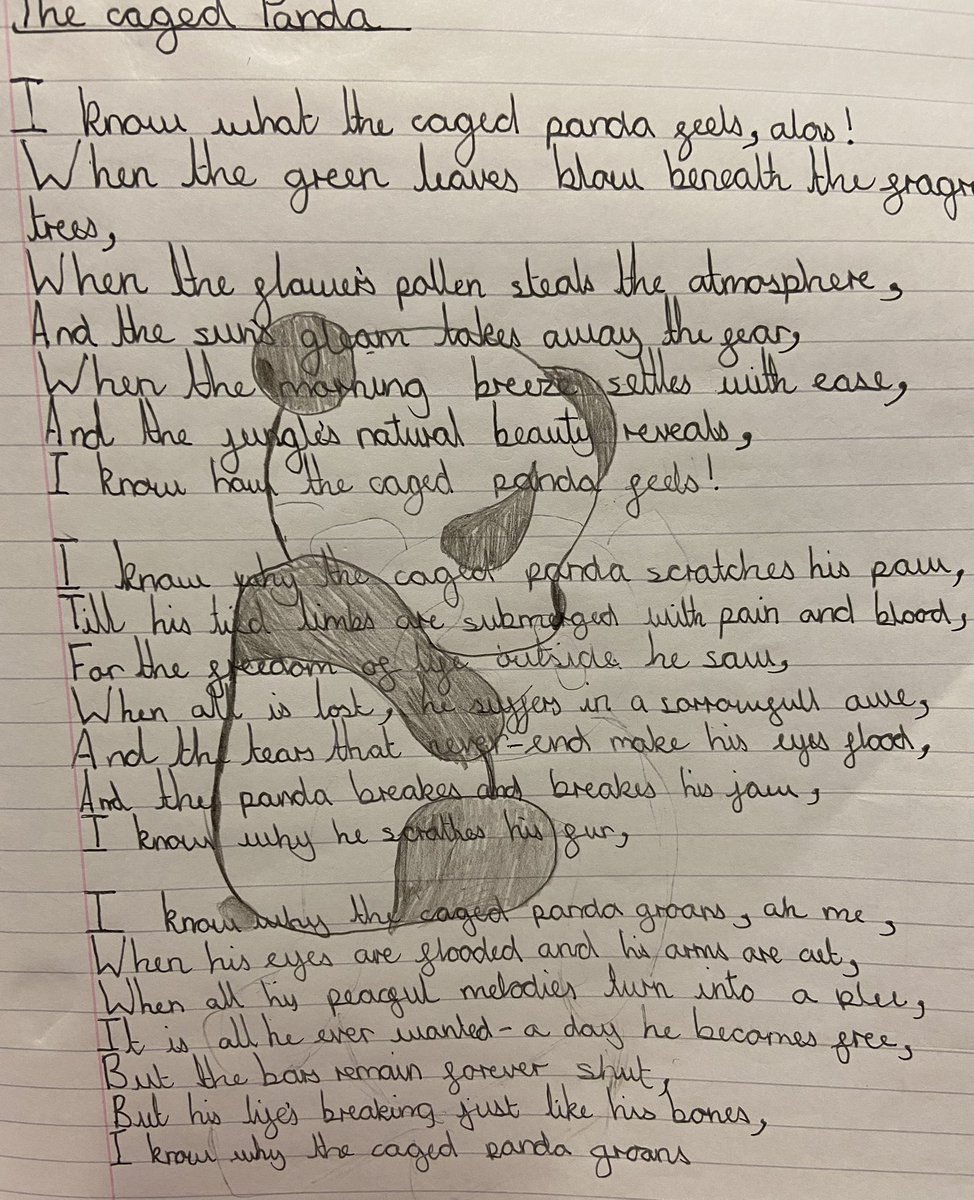 The caged Panda
I know what the caged panda feels, alas!
When the green leaves blow beneath the fragr
trees,
When the flower's pollen steals the atmosphere,
And the sun's gleam takes away the fear,
When the morning breeze settles with ease,
And the jungle's natural beauty reveals,
I know how the caged panda feels!
I know why the caged panda scratches his paw,
Till his tired limbs are submerged with pain and blood,
For the freedom of life outside he saw,
When all is lost, he suffers in a sorrowfull awe,
And the tears that never-end make his eyes flood,
And the panda breakes and breakes his jaw,
I know why he scrathes his fur,
I know why the caged panda groans, ah me,
When his eyes are flooded and his arms are cut,
When all his peacful melodies turn into a plee,
It is all he ever wanted - a day he becomes free,
But the bars remain forever shut,
But his life's breaking just like his bones,
I know why the caged panda groans